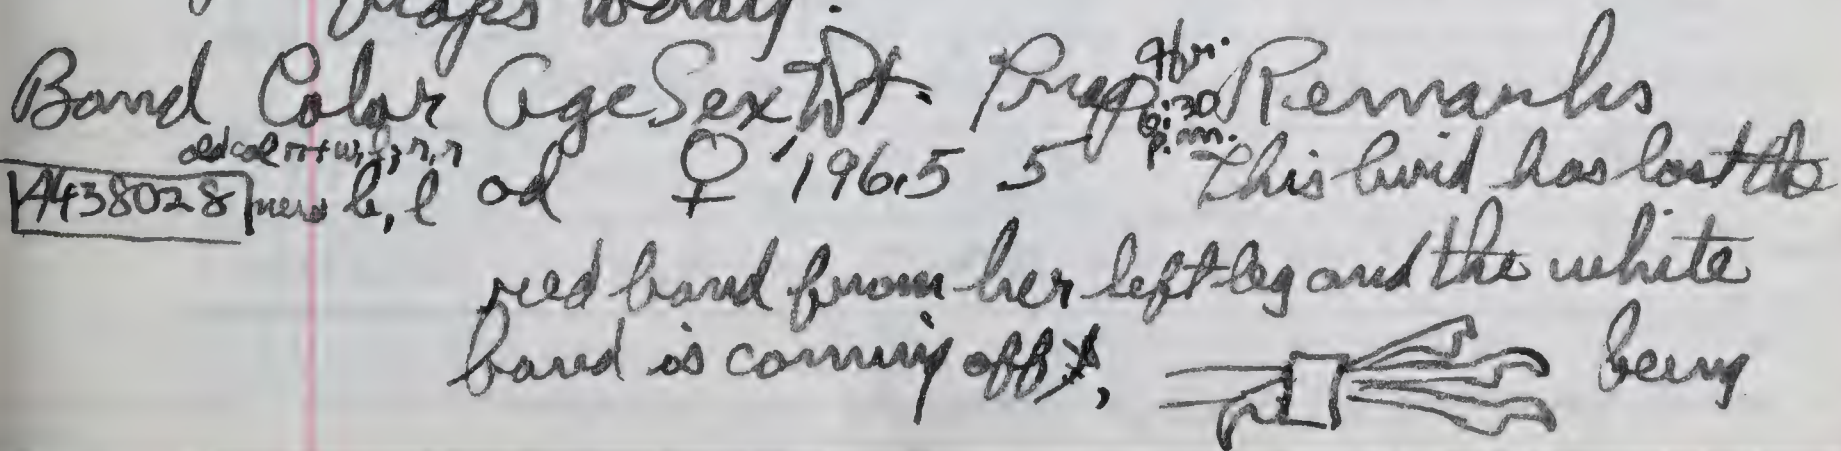 traps today.
Band Color Age Sex Wt. Prey 9 hr. 6:30 p.m. Remarks
old col r + w, r, r
A438028 new b, l ad ♀ 196.5 5 This bird has lost the
red band from her left leg and the white
band is coming off, being